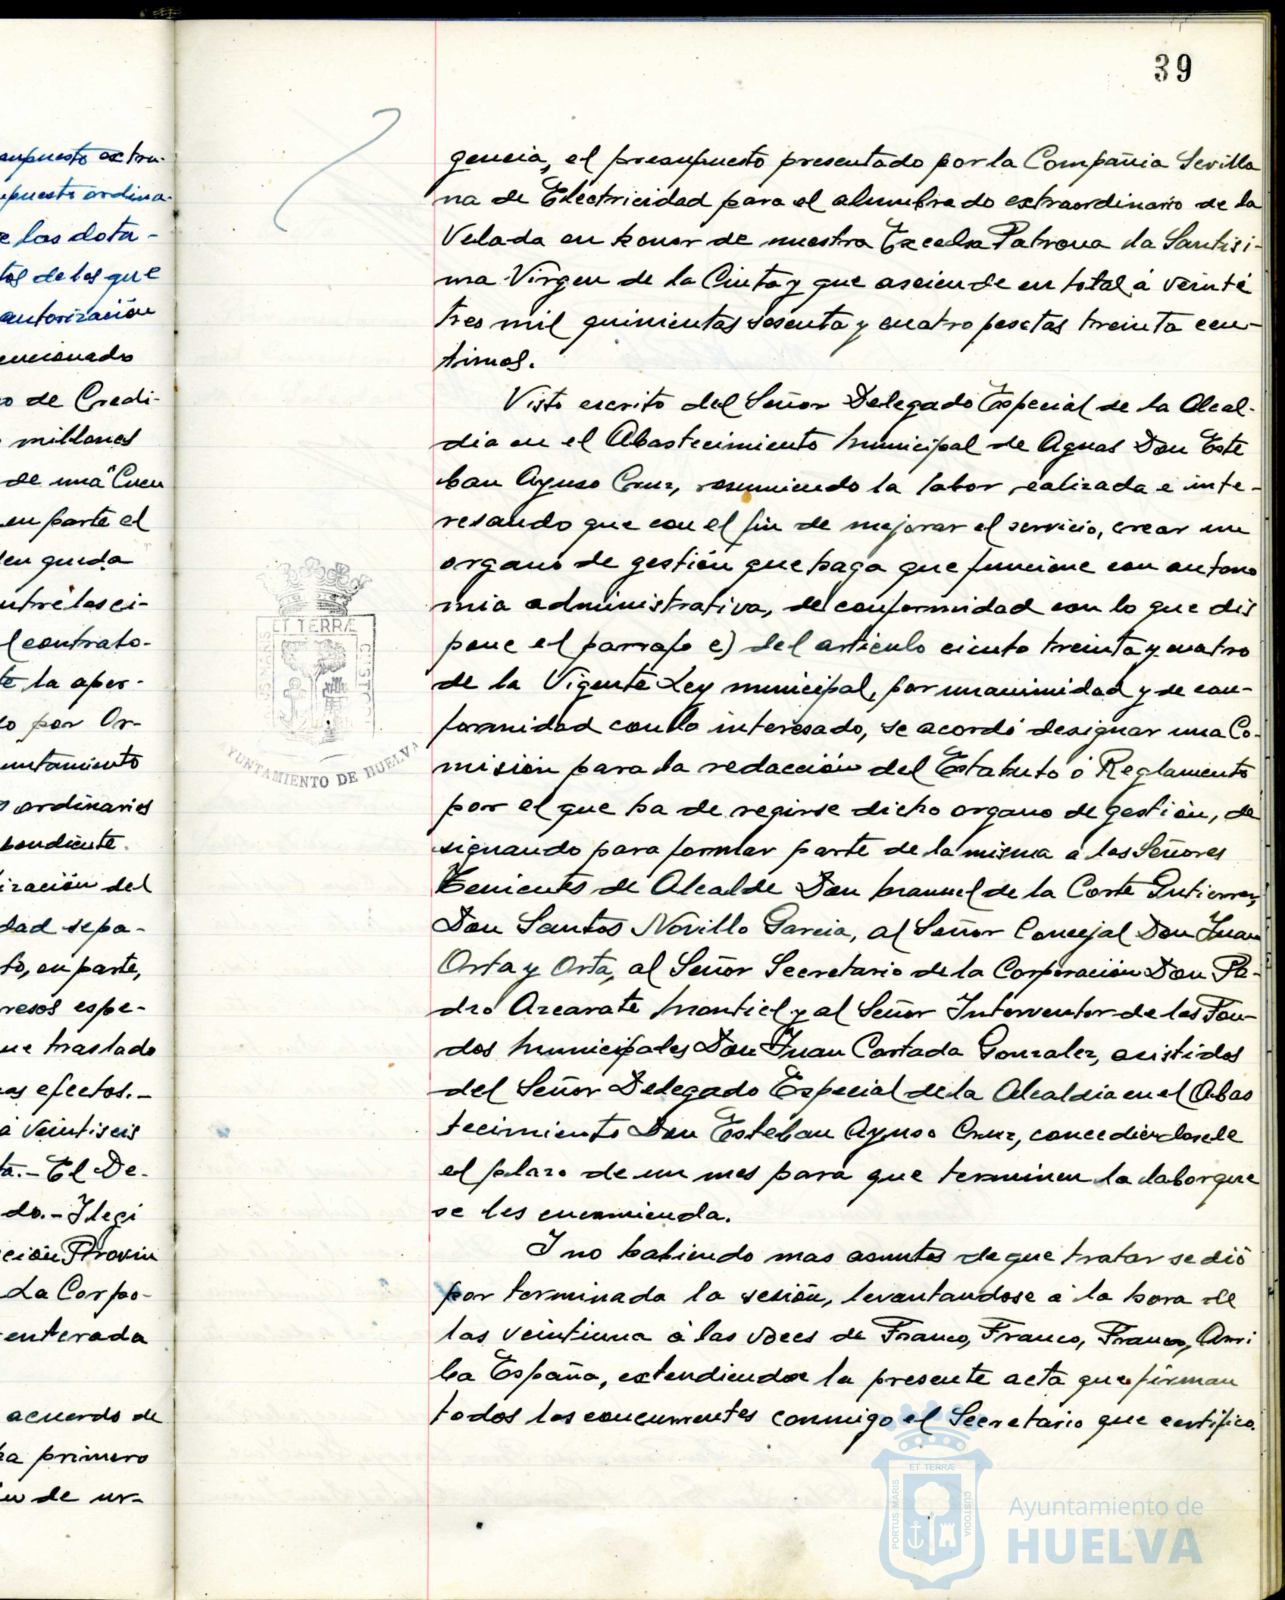 supuesto extra-
puesto ordina-
e las dota-
tos de los que
autorización
encionado
o de Credi-
millones
de una "Cuen
en parte el
den queda
entre los ci-
l contrato-
te la aper-
o por Or-
untamiento
s ordinarios
pondiente.
ización del
dad sepa-
to, en parte,
resos espe-
ue traslado
os efectos.-
a veintiseis
ta.- El De-
do.- Ilegi
ción Provin
La Corpo-
enterada
acuerdo de
ha primero
de ur-
39
gencia, el presupuesto presentado por la Compañia Sevilla
na de Electricidad para el alumbrado extraordinario de la
Velada en honor de nuestra Excelsa Patrona la Santisi-
ma Virgen de la Cinta y que asciende en total á veinte
tres mil quinientas sesenta y cuatro pesetas treinta cen-
timos.
Visto escrito del Señor Delegado Especial de la Alcal-
dia en el Abastecimiento Municipal de Aguas Don Este
ban Ayuso Cruz, resumiendo la labor realizada e inte-
resando que con el fin de mejorar el servicio, crear un
organo de gestión que haga que funcione con autono
mia administrativa, de conformidad con lo que dis
pone el parrafo c) del articulo ciento treinta y cuatro
de la Vigente Ley municipal, por unanimidad y de con-
formidad con lo interesado, se acordó designar una Co-
misión para la redacción del Estatuto ó Reglamento
por el que ha de regirse dicho organo de gestión, de
signando para formar parte de la misma a los Señores
Tenientes de Alcalde Don Manuel de la Corte Gutierrez,
Don Santos Novillo Garcia, al Señor Concejal Don Juan
Orta y Orta, al Señor Secretario de la Corporación Don Pe-
dro Azcarate Montiel y al Señor Interventor de los Fon-
dos Municipales Don Juan Cortada Gonzalez, asistidos
del Señor Delegado Especial de la Alcaldia en el Abas
tecimiento Don Esteban Ayuso Cruz, concediendosele
el plazo de un mes para que terminen la labor que
se les encomienda.
I no habiendo mas asuntos de que tratar se dió
por terminada la sesión, levantandose á la hora de
las veintiuna á las voces de Franco, Franco, Franco, Arri
ba España, extendiendose la presente acta que firman
todos los concurrentes conmigo el Secretario que certifico.
ET TERRÆ
AYUNTAMIENTO DE HUELVA
ET TERRÆ
PORTUS MARIS
CUSTODIA
Ayuntamiento de
HUELVA